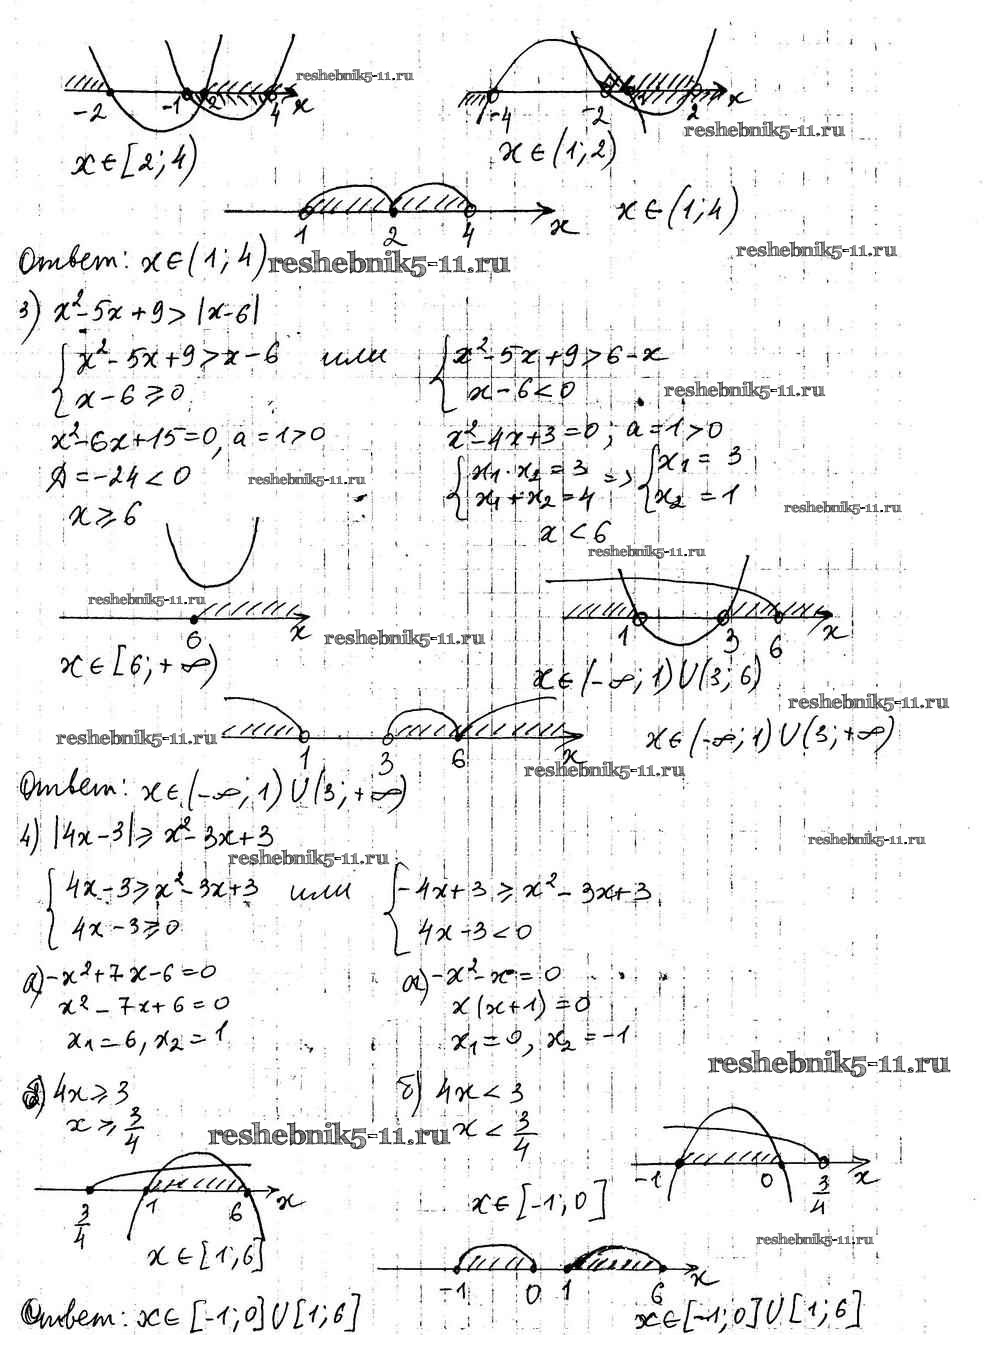 reshebnik5-11.ru
-2 -1 2 4 x
-4 -2 1 2 x
reshebnik5-11.ru
x∈[2;4)
x∈(1;2)
1 2 4 x
x∈(1;4)
Ответ: x∈(1;4) reshebnik5-11.ru
reshebnik5-11.ru
3) x²-5x+9>|x-6|
{x²-5x+9>x-6 или {x²-5x+9>6-x
x-6⩾0 x-6<0
reshebnik5-11.ru
x²-6x+15=0, a=1>0 x²-4x+3=0; a=1>0
Д=-24<0 {x₁·x₂=3 => {x₁=3
reshebnik5-11.ru
x₁+x₂=4 x₂=1
reshebnik5-11.ru
x⩾6 x<6
reshebnik5-11.ru
reshebnik5-11.ru
6 x
reshebnik5-11.ru
1 3 6 x
x∈[6;+∞) x∈(-∞;1)∪(3;6)
reshebnik5-11.ru
reshebnik5-11.ru
1 3 6 x
x∈(-∞;1)∪(3;+∞)
reshebnik5-11.ru
Ответ: x∈(-∞;1)∪(3;+∞)
4) |4x-3|⩾x²-3x+3
reshebnik5-11.ru
reshebnik5-11.ru
{4x-3⩾x²-3x+3 или {-4x+3⩾x²-3x+3
4x-3⩾0 4x-3<0
а) -x²+7x-6=0 а) -x²-x=0
x²-7x+6=0 x(x+1)=0
x₁=6, x₂=1 x₁=0, x₂=-1
reshebnik5-11.ru
б) 4x⩾3 б) 4x<3
x⩾3/4 x<3/4
reshebnik5-11.ru
3/4 1 6 x
-1 0 3/4 x
x∈[1;6] x∈[-1;0]
reshebnik5-11.ru
-1 0 1 6 x
Ответ: x∈[-1;0]∪[1;6] x∈[-1;0]∪[1;6]